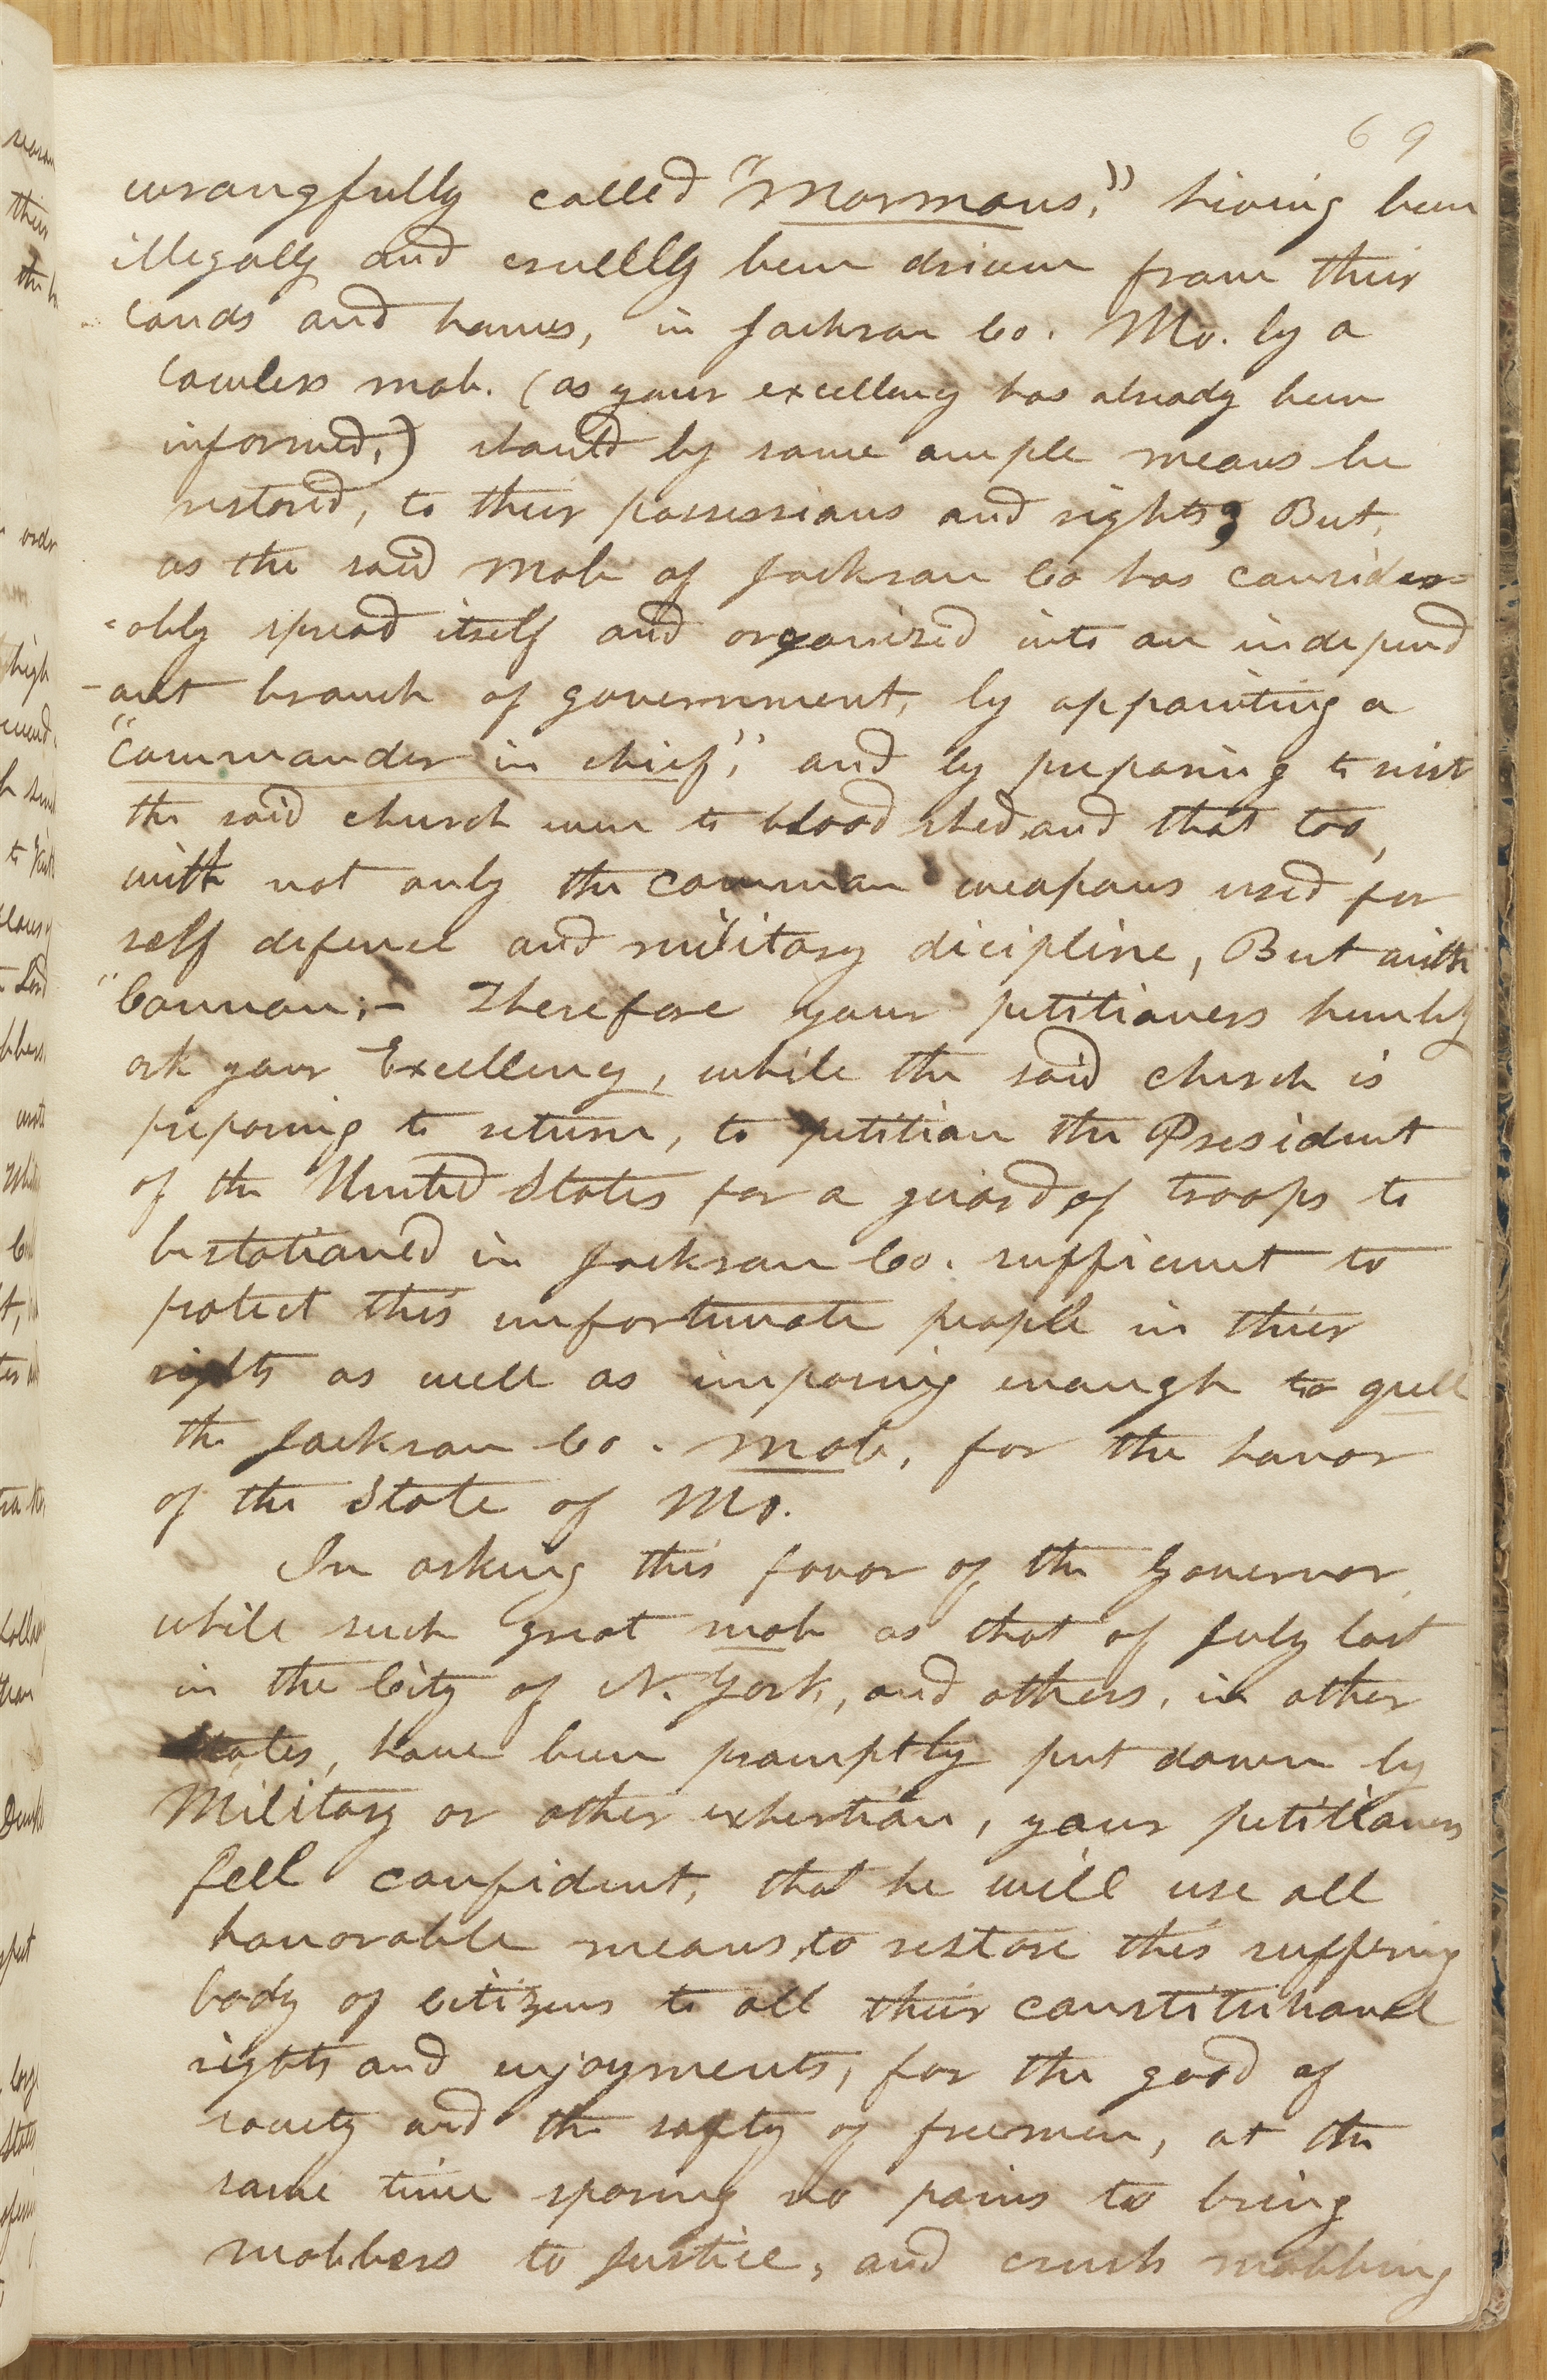 69
wrongfully called "Mormons," having been
illegally and cruelly been driven from their
lands and homes, in Jackson Co. Mo. by a
lawless mob. (as your excellency has already been
informed,) should by some ample means be
restored, to their possessions and rights; But,
as the said mob of Jackson Co has consider=
=ably spread itself and organized into an independ
-ant branch of government, by appointing a
"commander in chief," and by preparing to resist
the said church even to blood shed, and that too,
with not only the common weapons used for
self defence and military dicipline, But with
"Cannon;- Therefore your petitioners humbly
ask your Excellency, while the said church is
preparing to return, to petition the President
of the United States for a guard of troops to
be stationed in Jackson Co. sufficient to
protect this unfortunate people in thier
rights as well as imposing enough to quell
the Jackson Co. mob, for the honor
of the State of Mo.
In asking this favor of the Governor,
while such great mob as that of July last
in the City of N. York, and others, in other
States, have been promptly put down by
Military or other exhertion, your petitioners
fell confident, that he will use all
honorable means, to restore this suffering
body of citizens to all their constitutional
rights and enjoyments, for the good of
society and the safty of freemen, at the
same time sparing no pains to bring
mobbers to justice, and crush mobbing